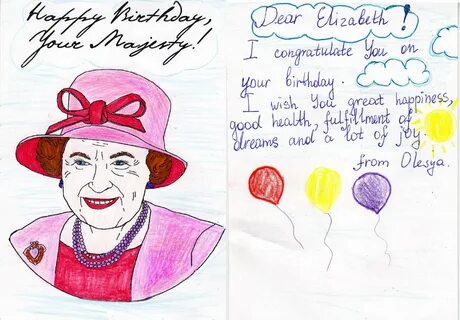 Happy Birthday,
Your Majesty!
Dear Elizabeth !
I congratulate You on
your birthday.
I wish You great happiness,
good health, fulfillment of
dreams and a lot of joy.
from Olesya.